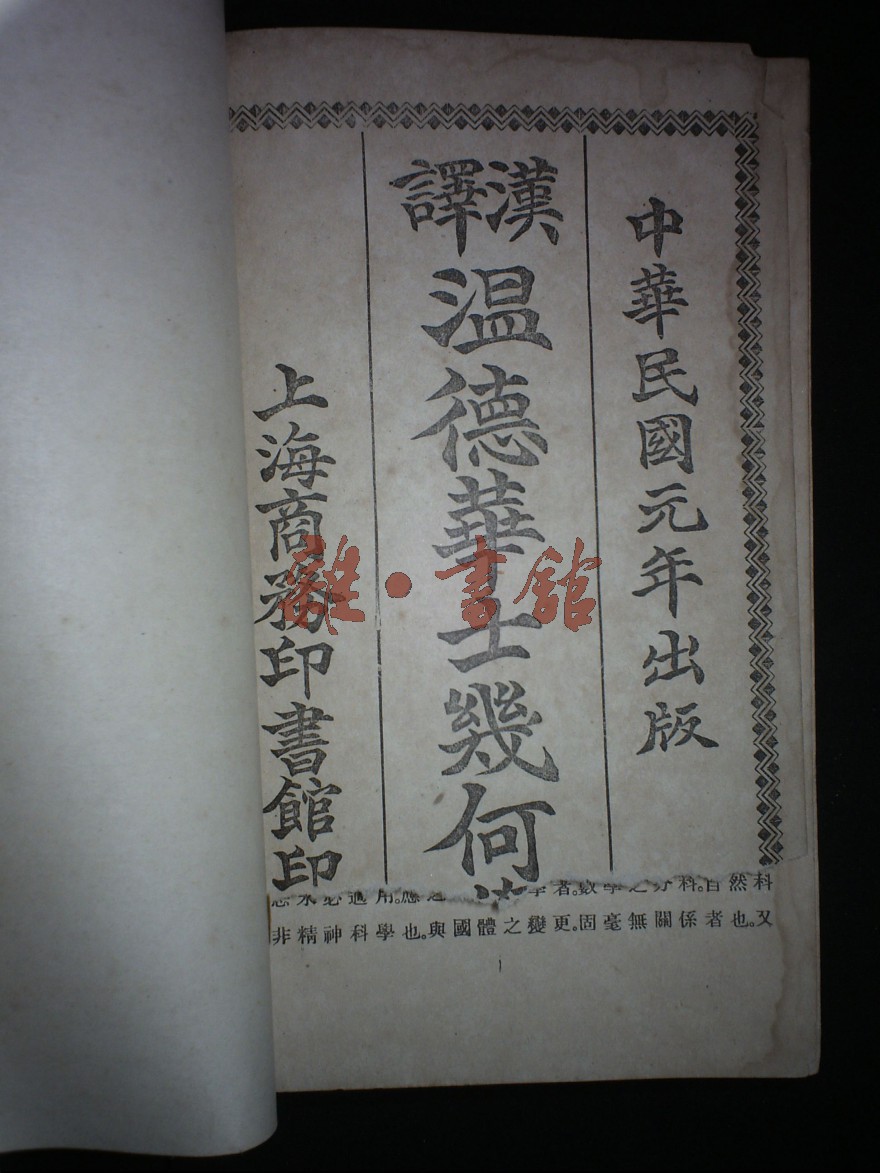 中華民國元年出版
漢譯
温德華士幾何
上海商務印書館印
用。應
學者。數學之分科。自然科
非精神科學也。與國體之變更。固毫無關係者也。又
雜·書館